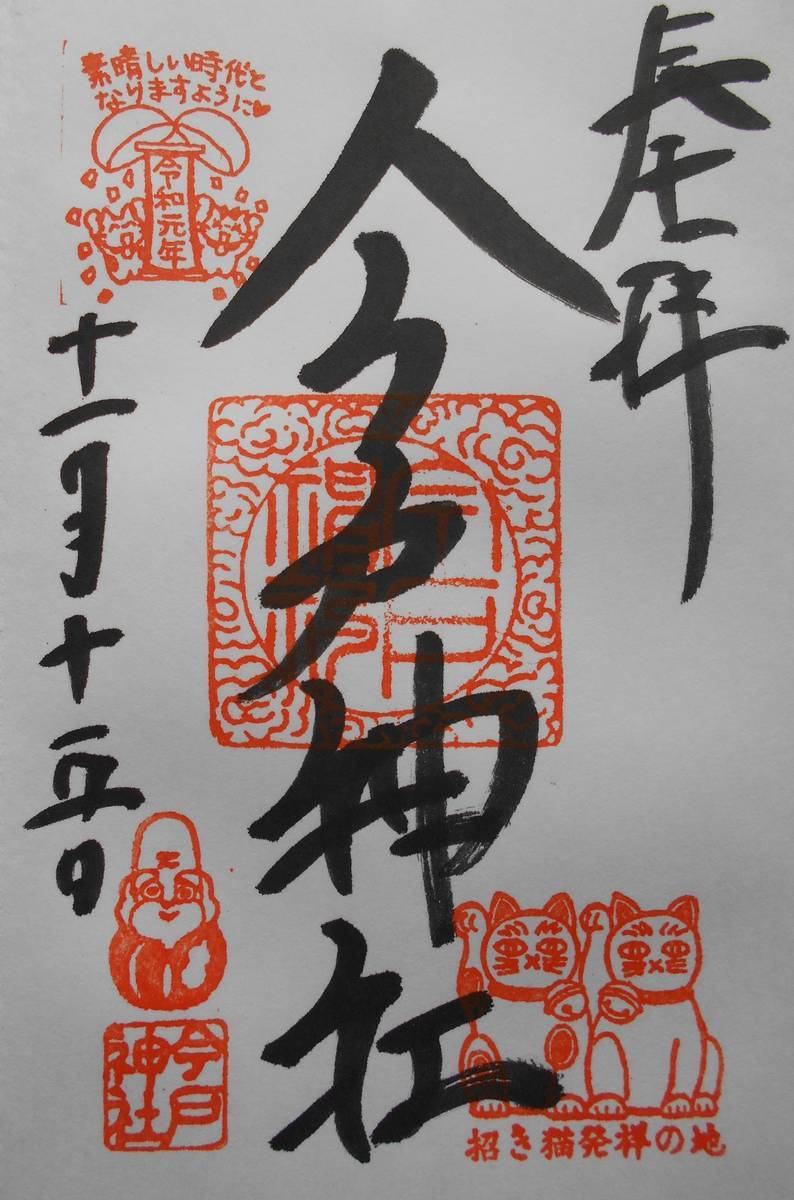 奉拝
素晴しい時代と
なりますように♥
令和元年
今戸神社
十一月十五日
今戸
神社
招き猫発祥の地